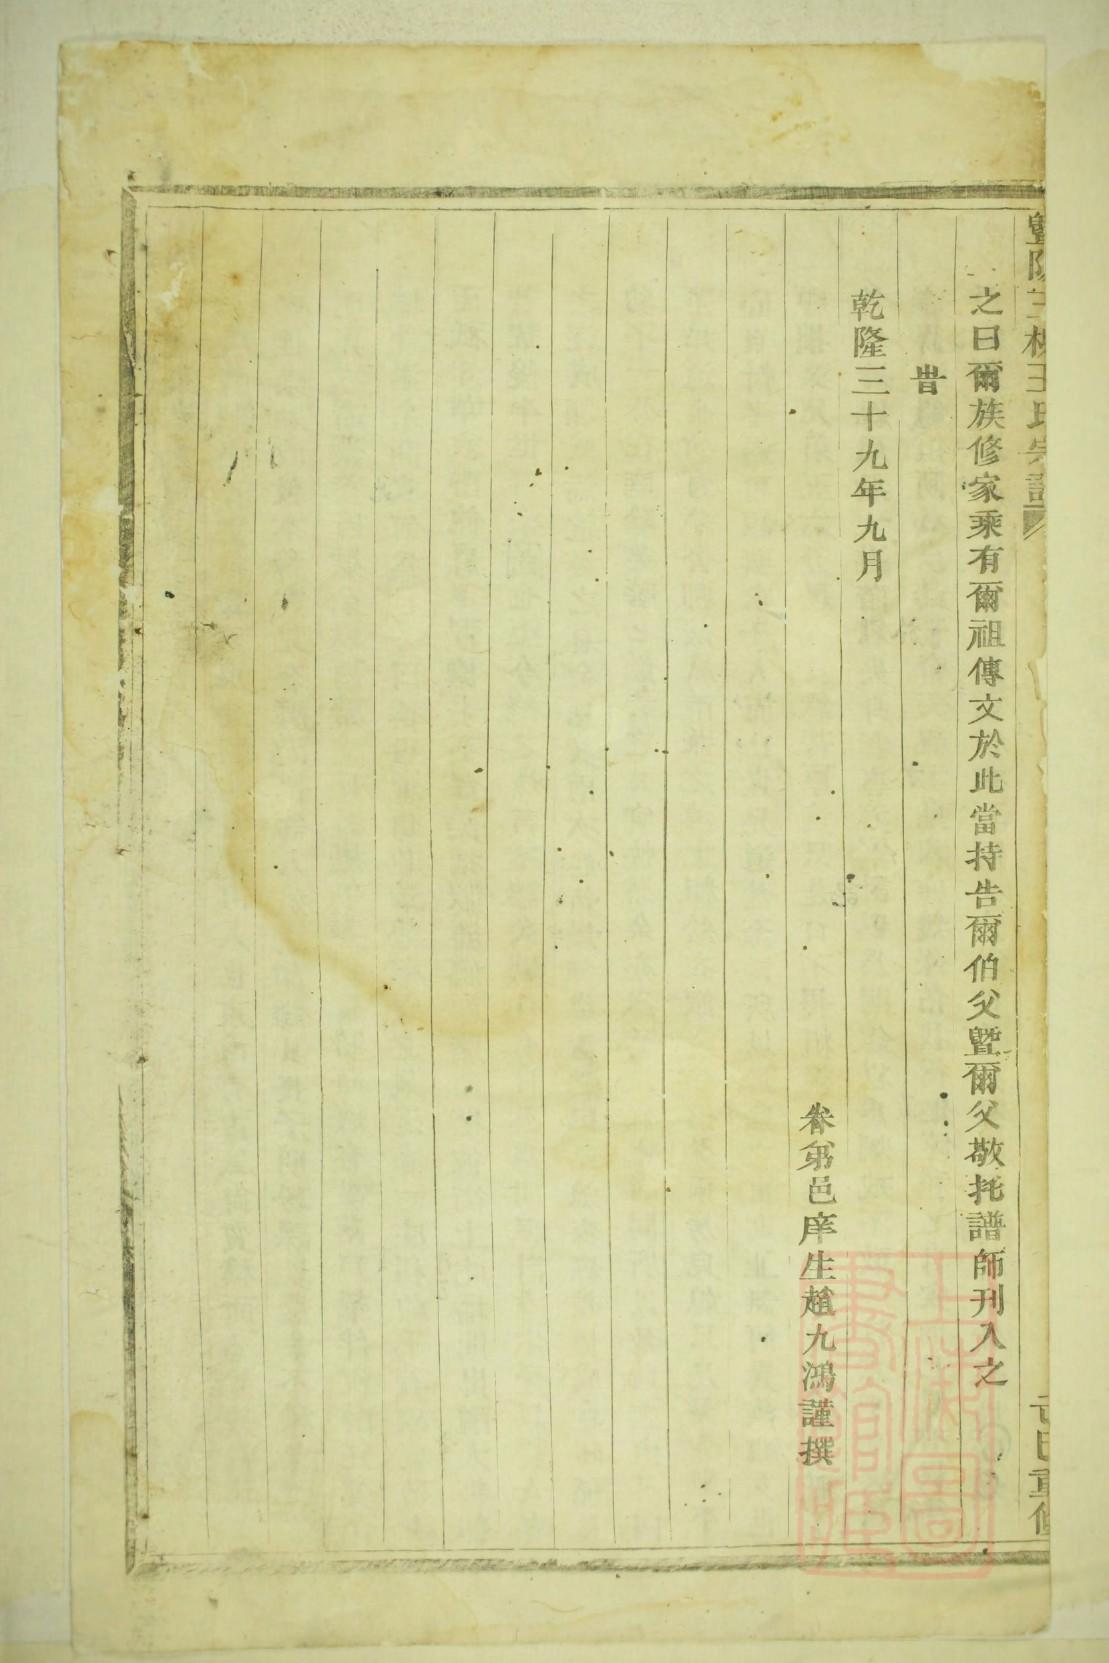 暨陽三橋王氏宗譜
民國重修
之曰爾族修家乘有爾祖傳文於此當持告爾伯父暨爾父敬托譜師刊入之
旹
乾隆三十九年九月
眷弟邑庠生趙九鴻謹撰
上海圖書館藏